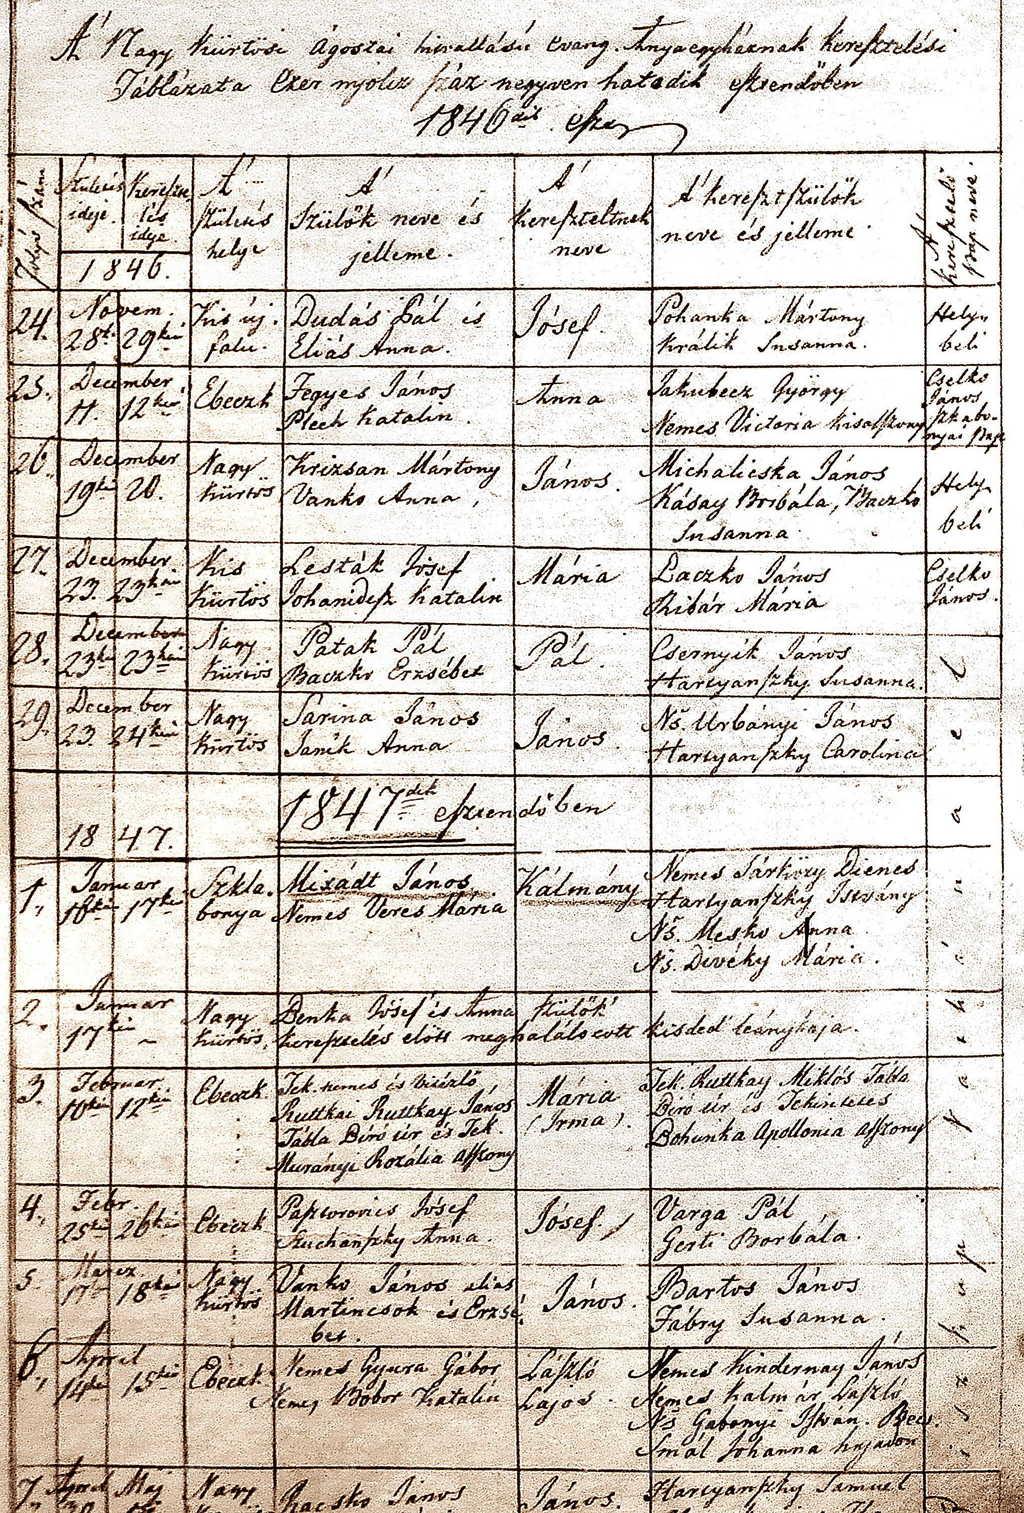 A' Nagy Kürtösi Ágostai hitvallású evang. Anyaegyháznak keresztelési
Táblázata Ezer nyolcz száz negyven hatodik esztendőben
1846dik eszt
Folyó szám
Születés ideje.
Keresztelés ideje.
1846.
A' születés helye
A' Szülők neve és jelleme.
A' kereszteltnek neve
A' keresztszülők neve és jelleme
A' keresztelő Pap neve.
24. Novem. 28ki 29kei Kis új. falu. Dudás Pál és Eliás Anna. Jósef. Pohanka Mártony Králik Susanna. Helybeli
25. December 11. 12kei Ebeczk Fegyes János Plech Katalin. Anna Jakubecz György Nemes Victoria kisasszony Cselko János Szklabonyai Pap
26. December 19kei 20. Nagy Kürtös Krizsan Mártony Vanko Anna, János. Michalicska János Kásay Borbála, Baczko Susanna Helybeli
27. December. 23. 23kai Kis Kürtös Lesták Jósef Johanidesz Katalin Mária Laczko János Ribár Mária Cselko János.
28. December 23ki 23kai Nagy Kürtös Patak Pál Baczko Erzsébet Pál. Csernyik János Harcyanszky Susanna.
29. December 23. 24kei Nagy Kürtös Sarina János Janik Anna János. Ns. Urbányi János Harcyanszky Carolina
1847dik esztendőben
1847.
1. Januar 16kei 17kei Szklabonya Mixádt János Nemes Veres Mária Kálmány Nemes Sárközy Dienes
Harcyanszky István
Ns. Mesko Anna
Ns. Divéky Mária.
2. Januar 17kei ~ Nagy Kürtös. Benka Jósef és Anna Szülők'
keresztelés előtt meghalálozott kisded leánykája.
3. Februar. 10kei 12kei Ebeczk. Tek. nemes és vitézlő Ruttkai Ruttkay János Tábla Biró úr és Tek. Murányi Rozália Asszony Mária (Irma). Tek. Ruttkay Miklós Tábla
Biró úr és Tekintetes
Bohunka Apollonia Asszony
4. Febr. 25kei 26kei Ebeczk Pasztorovics Jósef Szuchanszky Anna. Jósef. Varga Pál Gerti Borbála.
5 Marcz 17 18kai Nagy Kürtös Vanko János alias Martincsok és Erzsébet. János. Bartos János Fábry Susanna.
6. April 14ke 15kei Ebeczk. Nemes Gyura Gábor Nemes Bobor Katalin László Lajos. Nemes Kindernay János
Nemes Kalmár László
Ns Gabonyi István. Becs.
Smál Johanna hajadon
7. April Maj Nagy Racsko János János. Harcyanszky Samuel